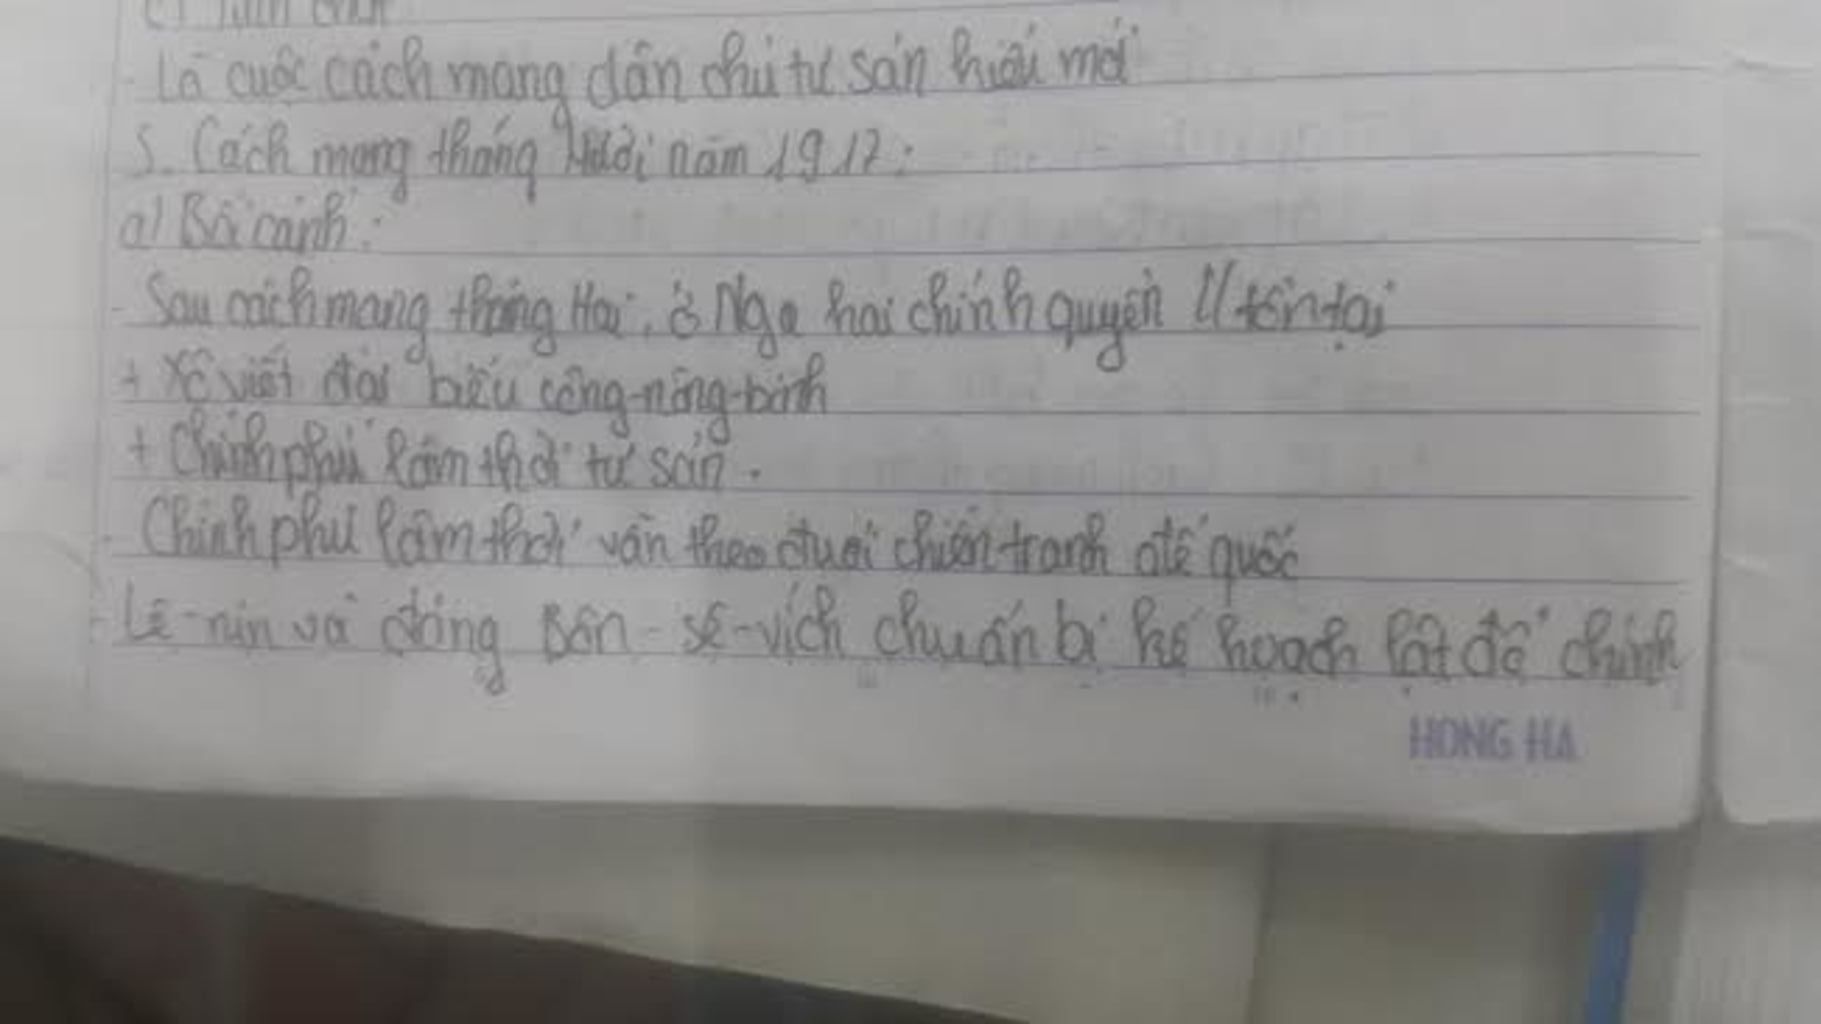 - Là cuộc cách mạng dân chủ tư sản kiểu mới
5. Cách mạng tháng Mười năm 1917:
a) Bối cảnh:
- Sau cách mạng tháng Hai, ở Nga hai chính quyền // tồn tại
+ Xô viết đại biểu công-nông-binh
+ Chính phủ lâm thời tư sản.
- Chính phủ lâm thời vẫn theo đuổi chiến tranh đế quốc
- Lê-nin và đảng Bôn-sê-vích chuẩn bị kế hoạch lật đổ chính
HONG HA